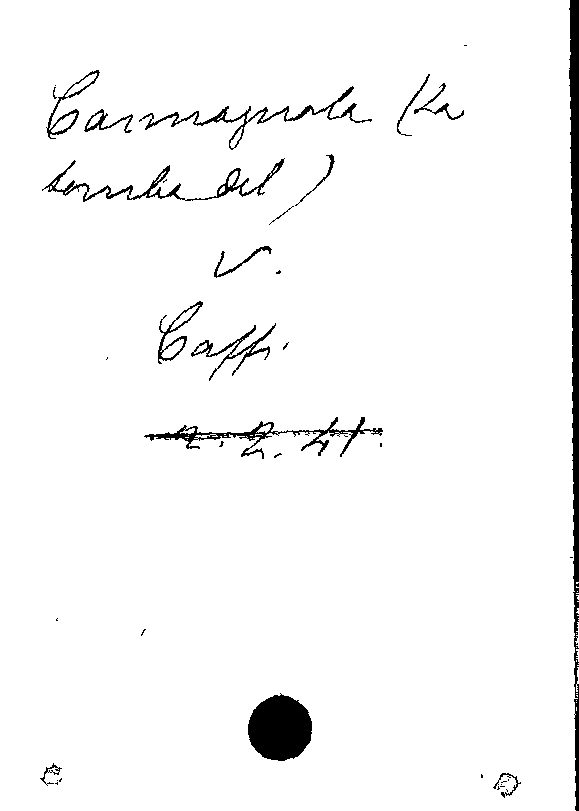 Carmagnola (La
tomba del)
V.
Caffi.
2. 2. 41.